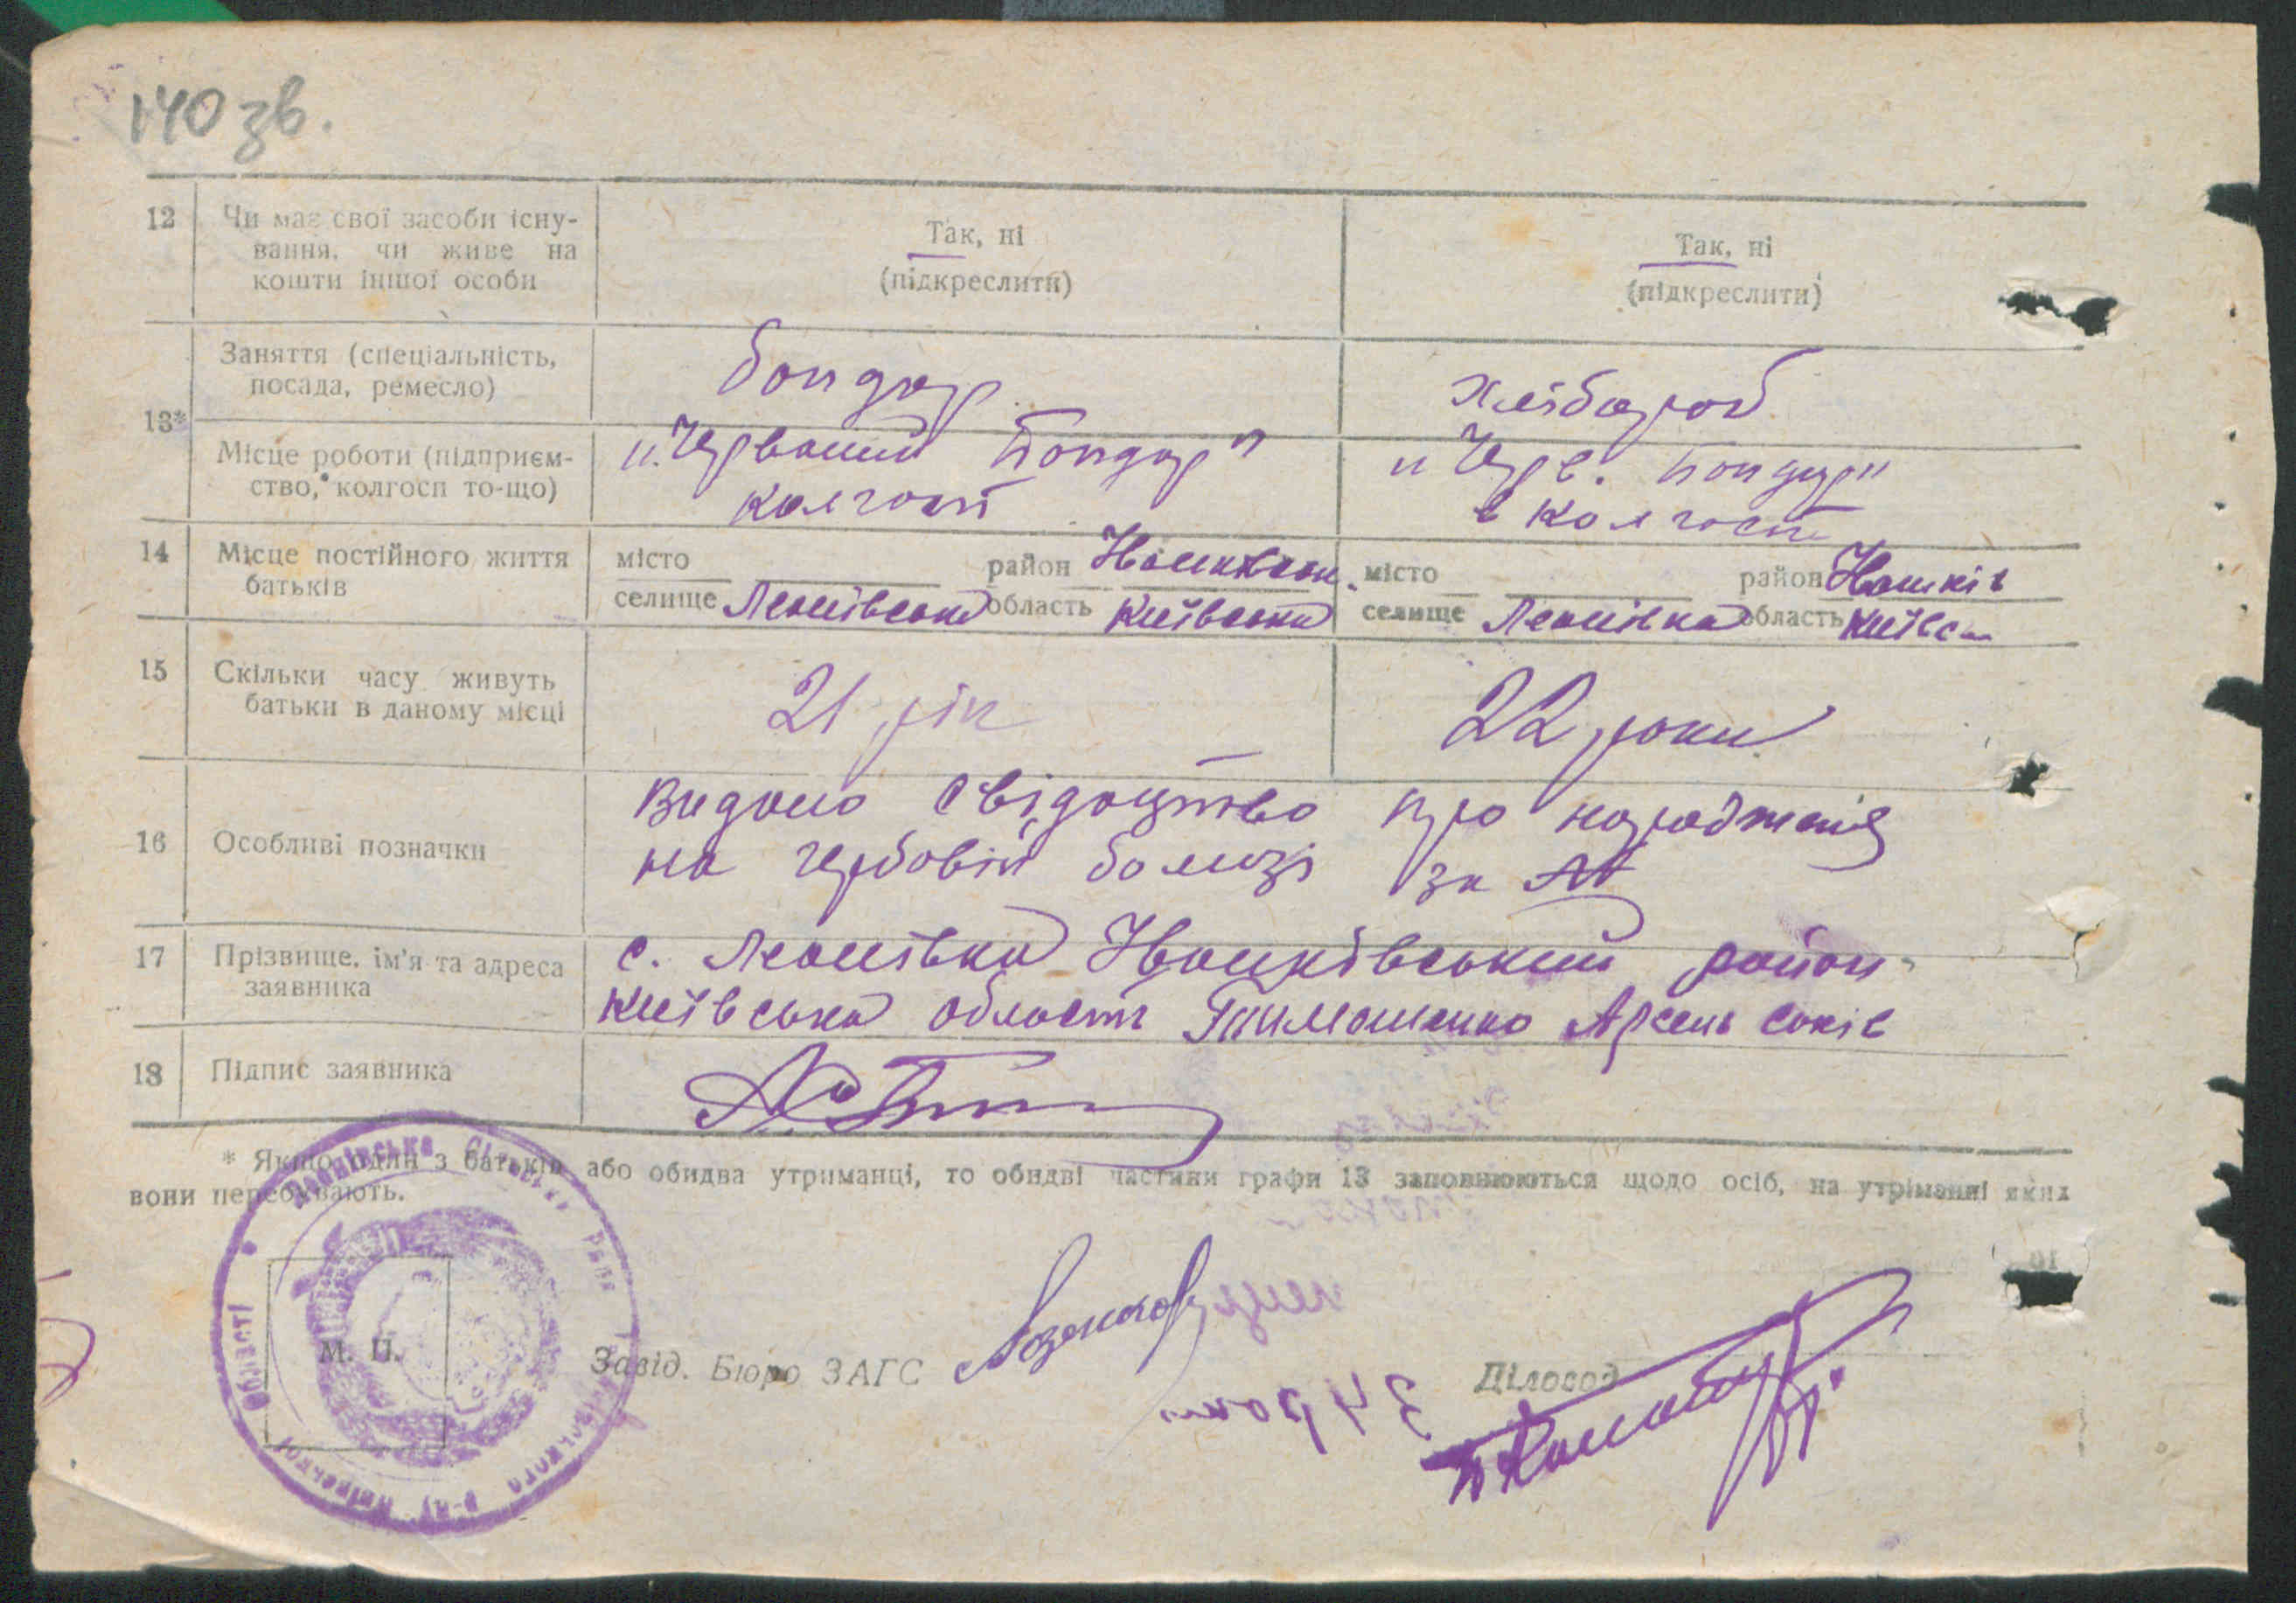 140 зв.
12 Чи має свої засоби існу-
вання, чи живе на
кошти іншої особи
Так, ні
(підкреслити)
Так, ні
(підкреслити)
13*
Заняття (спеціальність,
посада, ремесло)
бондар
хлібороб
Місце роботи (підприєм-
ство, колгосп то-що)
"Червоний Бондар"
колгосп
"Черв. Бондар"
в колгоспі
14 Місце постійного життя
батьків
місто район Іванківськ.
селище Леонівська область Київська
місто район Іванків
селище Леонівка область Київськ
15 Скільки часу живуть
батьки в даному місці
21 рік
22 роки
16 Особливі позначки
Видано свідоцтво про народження
на гербовій бомазі за №
17 Прізвище, ім'я та адреса
заявника
с. Леонівка Іванківський район
Київська область Тимошенко Арсень Соків
18 Підпис заявника
* Якщо один з батьків або обидва утриманці, то обидві частини графи 13 заповнюються щодо осіб, на утріманні яких
вони перебувають.
Леонівська Сільська Рада
р-ну Київської Області
М. П.
Завід. Бюро ЗАГС
Діловод